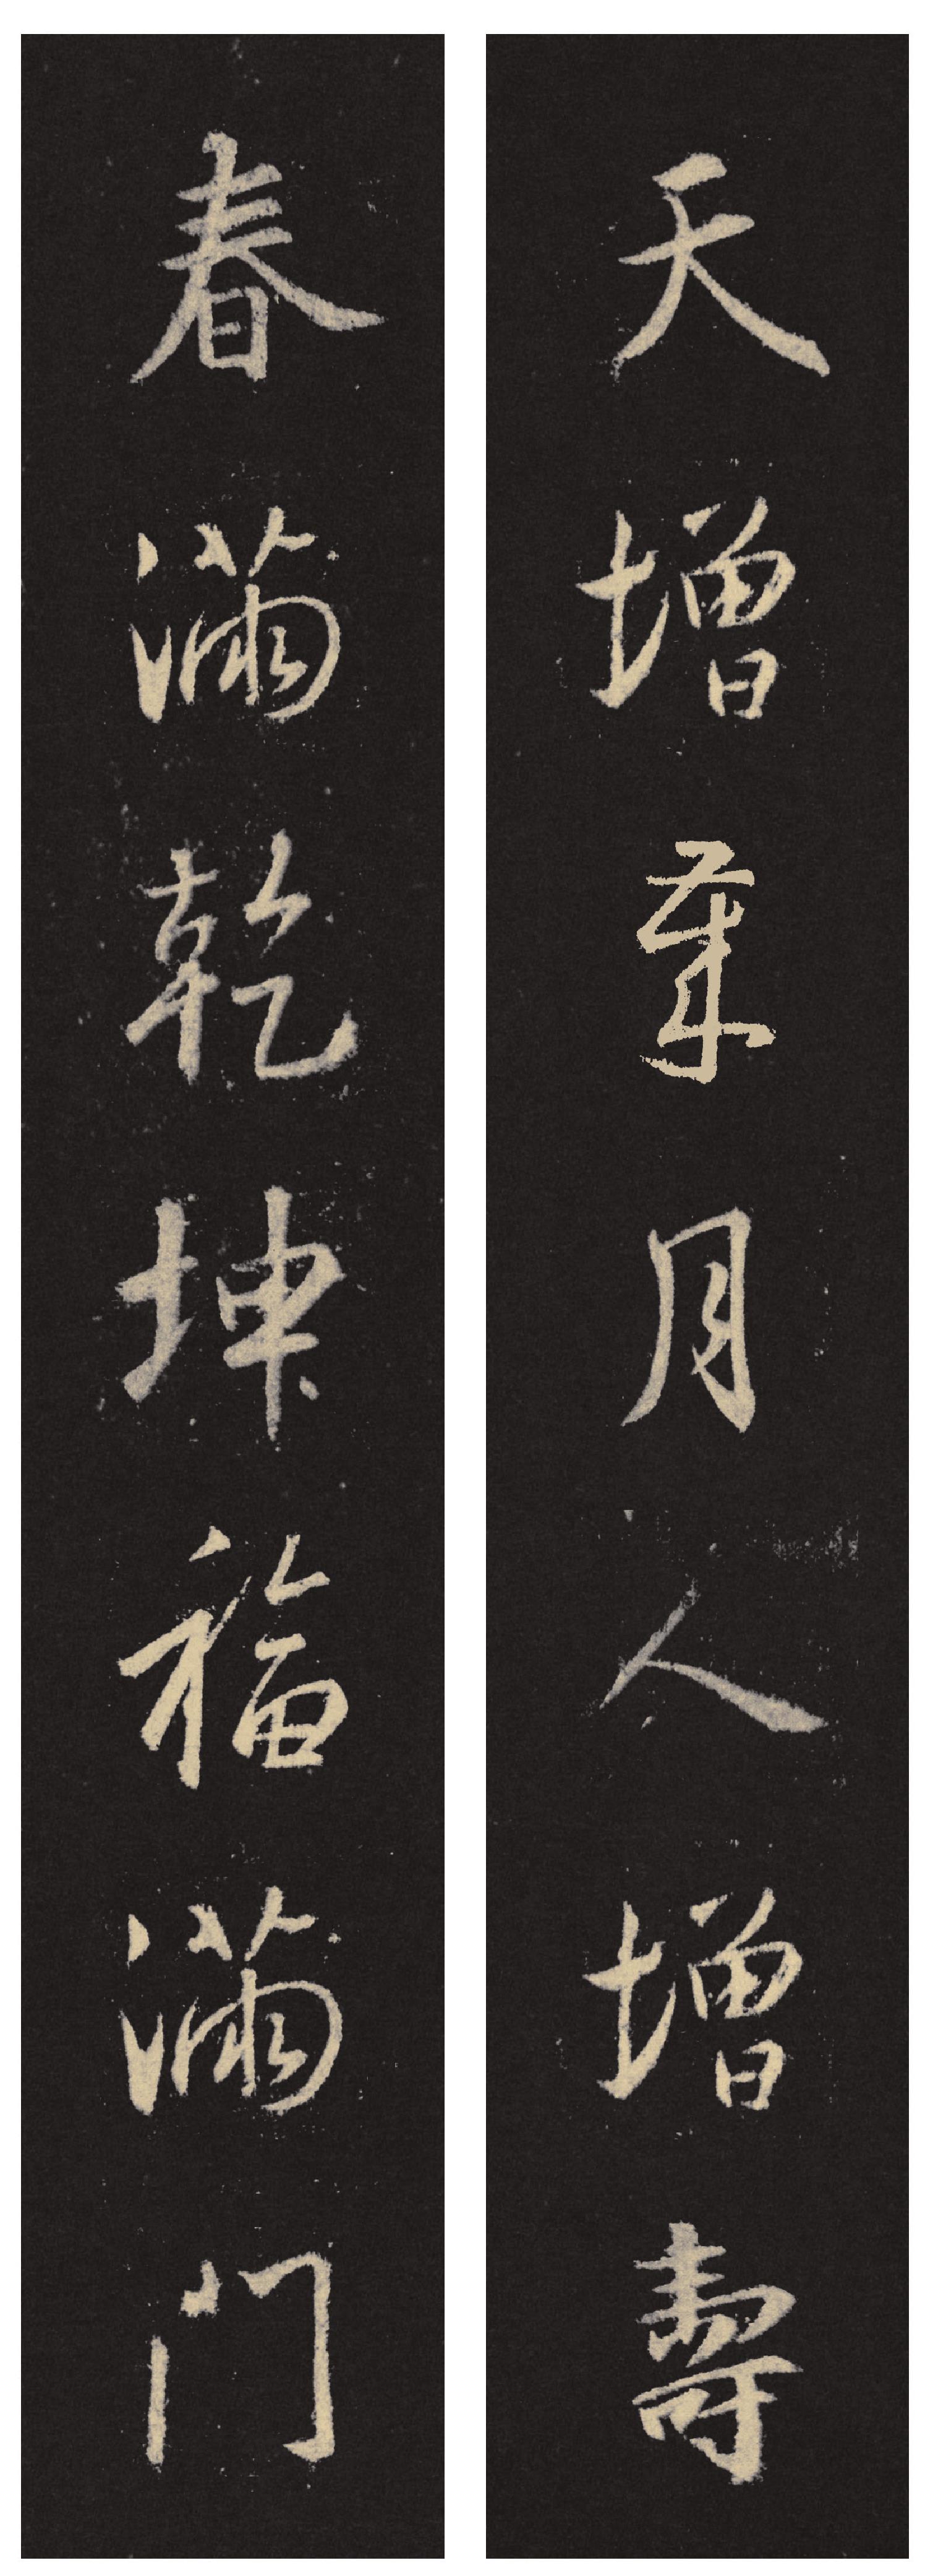 天增歲月人增壽
春滿乾坤福滿门